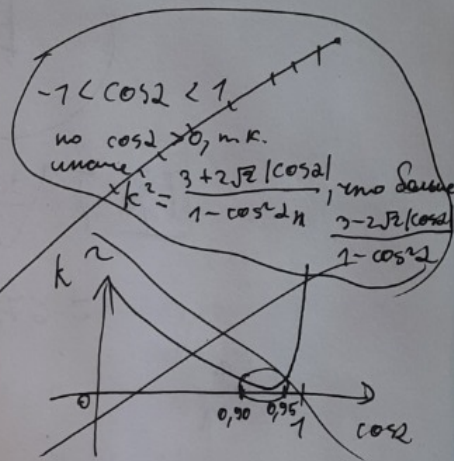 -1 < cos2 < 1,
но cos2 > 0, т.к.
иначе k² = (3+2√2 |cos2|)/(1-cos²2), что больше (3-2√2 |cos2|)/(1-cos²2)
k²
0 0,90 0,95 1 cos2